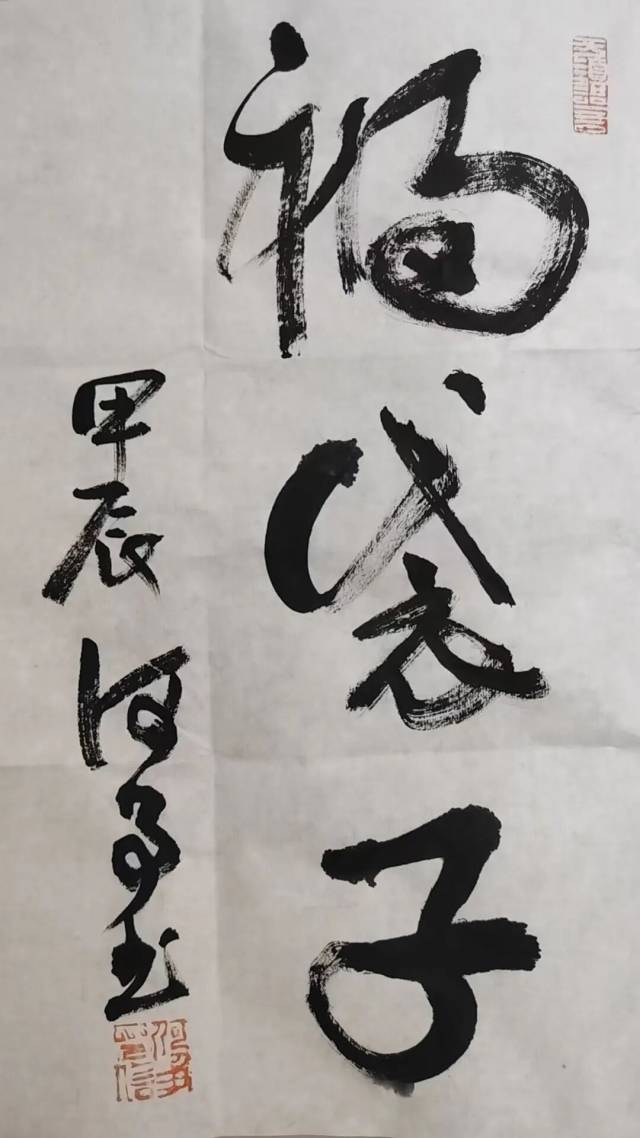 福袋子
甲辰 何 书